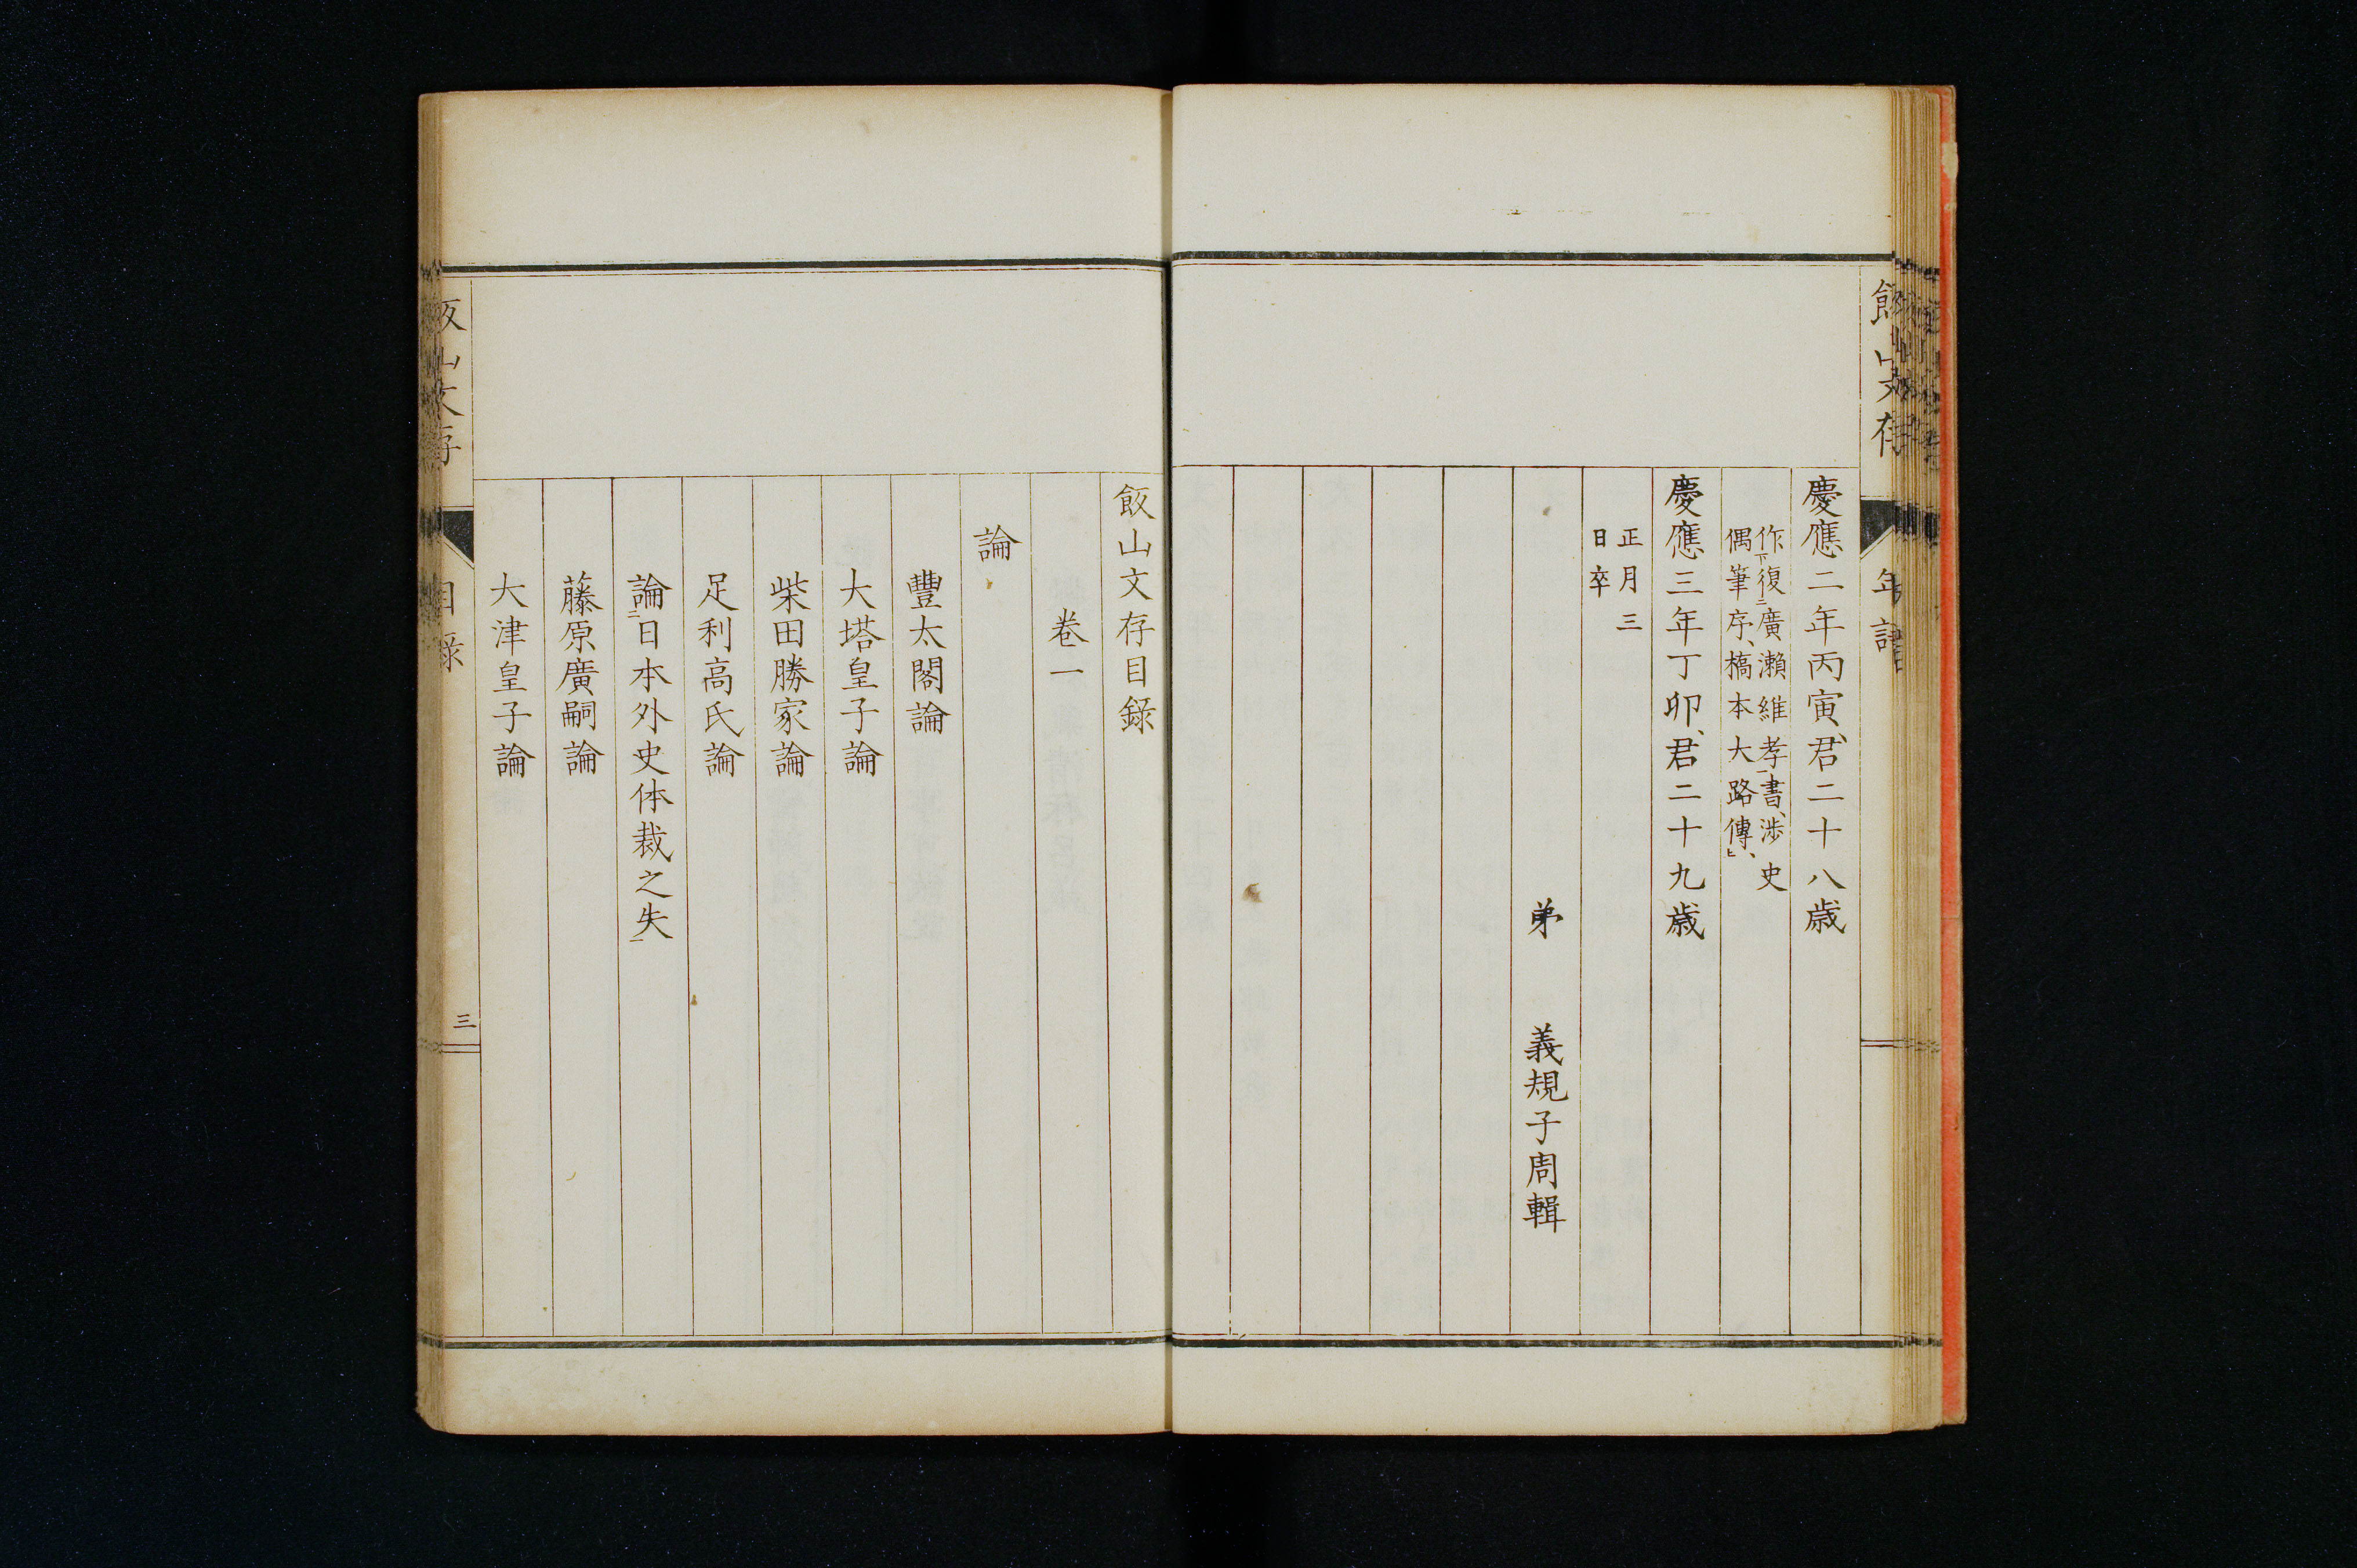 慶應二年丙寅、君二十八歳
作下復二廣瀨維孝一書、渉史
偶筆序、槁本大路傳上、
慶應三年丁卯、君二十九歳
正月三
日卒
弟 義規子周輯
飯山文存目錄
卷一
論
豐太閤論
大塔皇子論
柴田勝家論
足利高氏論
論二日本外史体裁之失一
藤原廣嗣論
大津皇子論
目錄
三